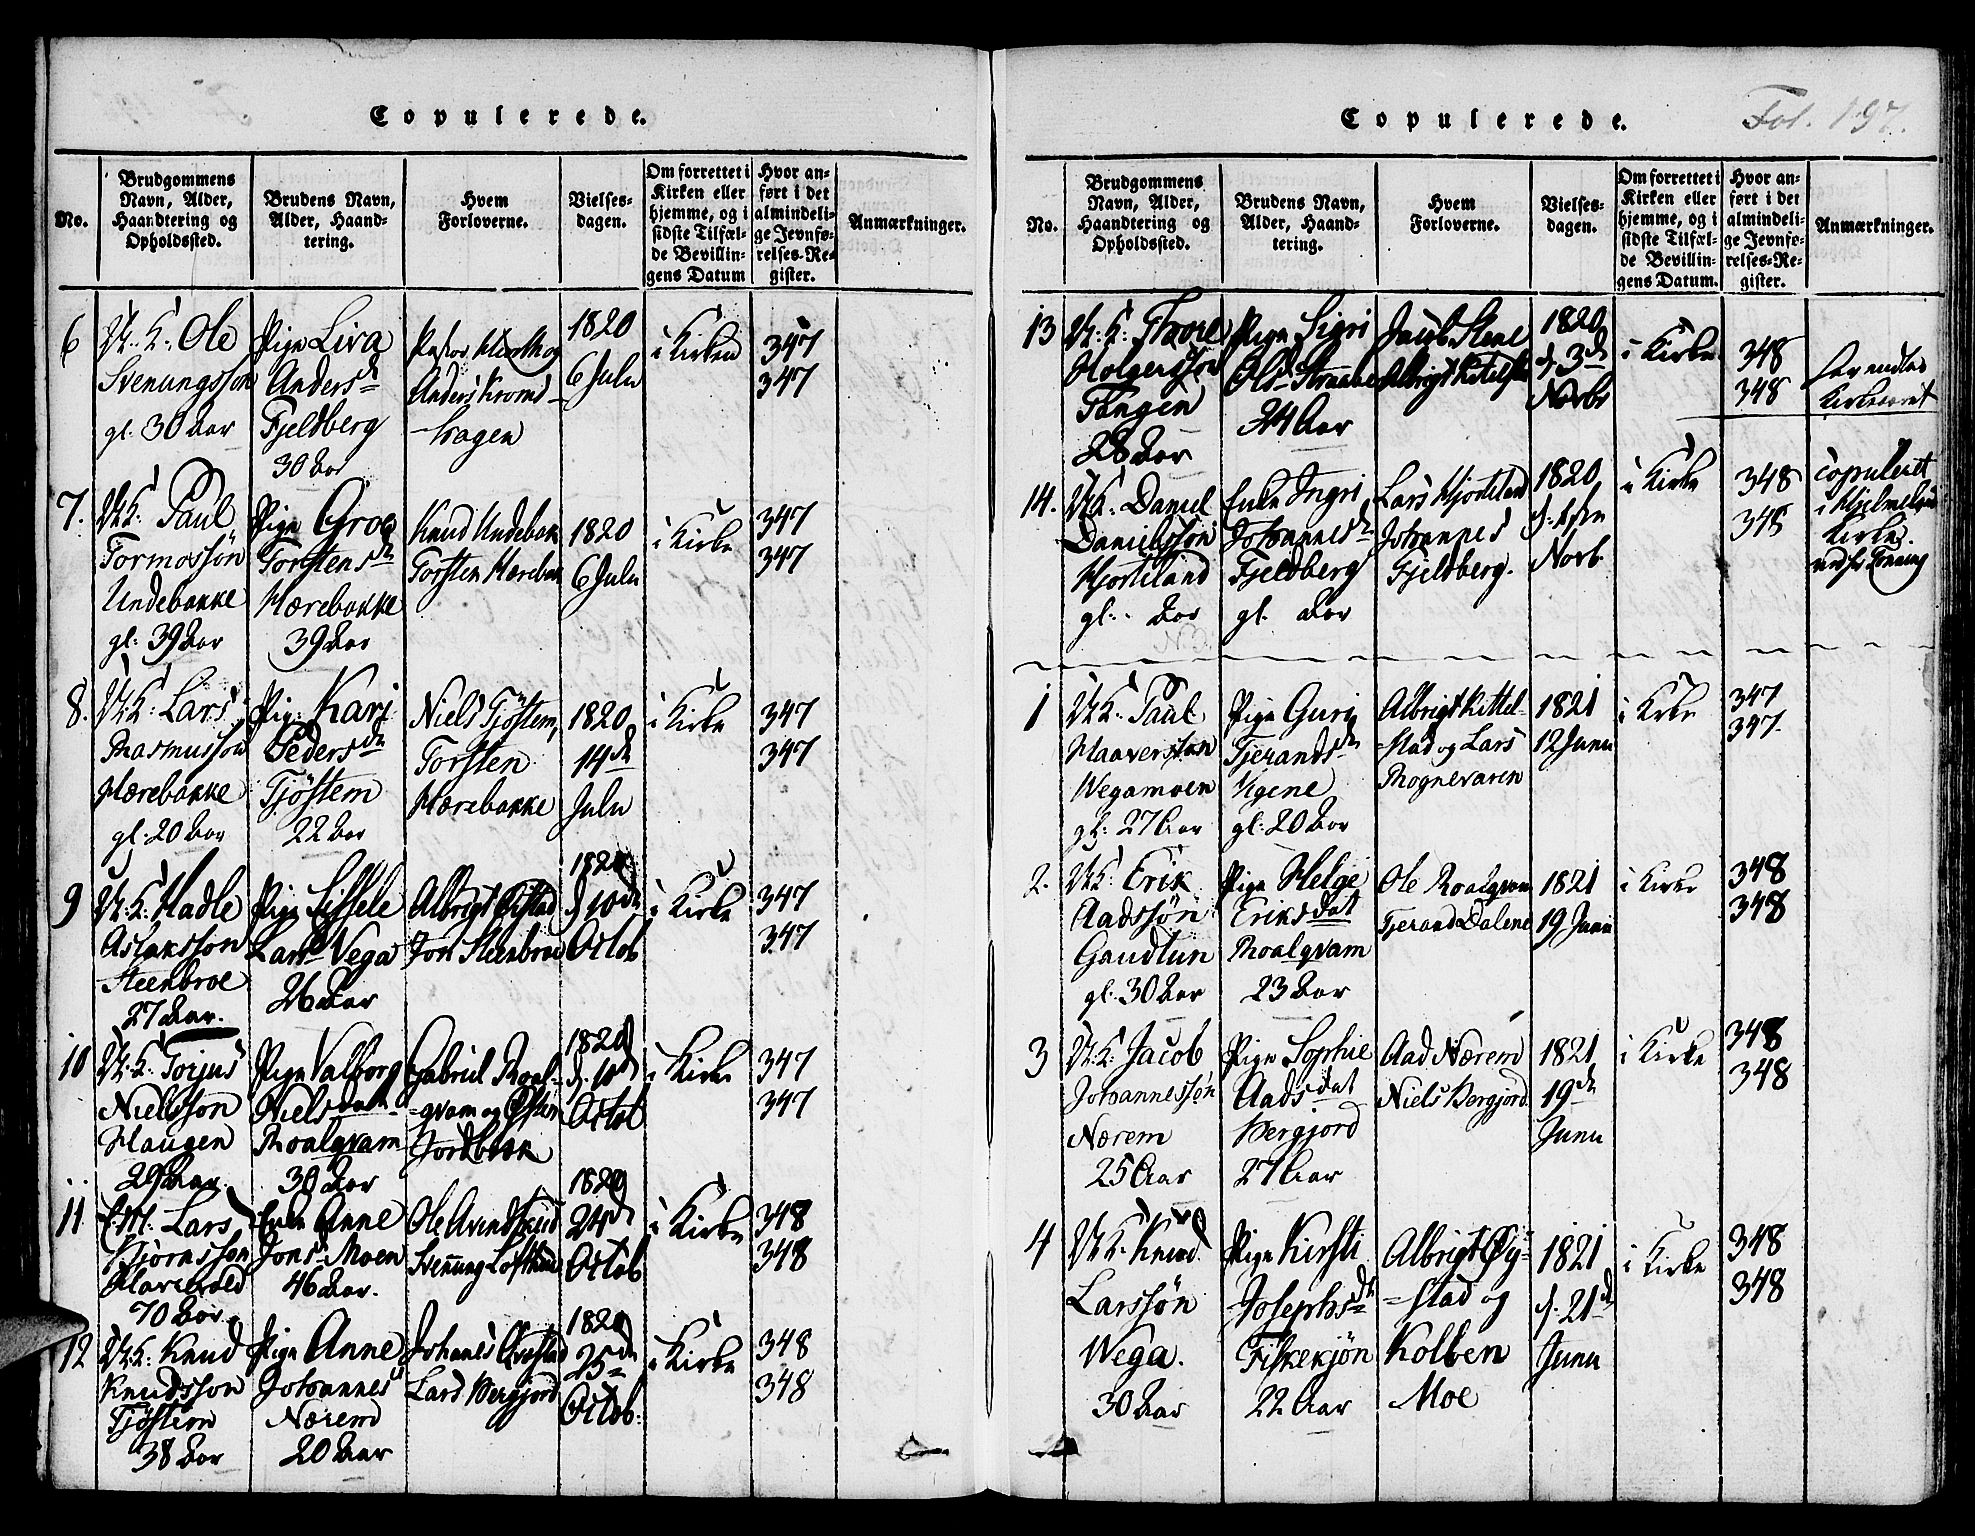 Copulerede.
No.
Brudgommens Navn, Alder, Haandtering og Opholdssted.
Brudens Navn, Alder, Haandtering.
Hvem Forloverne.
Vielsesdagen.
Om forrettet i Kirken eller hjemme, og i sidste Tilfælde Bevillingens Datum
Hvor anført i det almindelige Jevnførelses-Register.
Anmærkninger.
6
U. K. Ole
Svenungssøn
gl. 30 Aar
Pige Liva
Andersd
Fjeldberg
30 Aar
Pastor Hiorth og
Anders Kromshagen
1820
6 Julii
i Kirken
347
347
7.
UK. Paul
Tormossøn
Undebakke
gl. 39 Aar
Pige Groe
Torstensdr
Hærebakke
39 Aar
Knud Undebak
Torsten Hærebak
1820
6 Julii
i Kirke
347
347
8.
UK. Lars
Rasmussøn
Hærebakke
gl. 20 Aar
Pig. Kari
Pedersdr
Tjøstem
22 Aar
Niels Tjøstem,
Torsten
Hærebakke
1820
14de
Julii
i Kirke
347
347
9
U. K. Hadle
Aslakssøn
Steenbroe
27 Aar.
Pige Sissele
Lars Vega
26 Aar
Albrigt Øistad
Jon Steenbroe
1820
d 10de
Octob
i Kirke
347
347
10
U. K. Torjus
Nielssøn
Haugen
29 Aar.
Pige Valborg
Nielsdatr
Roalqvam
30 Aar
Gabriel Roalqvam og Østen
Jordbrek
1820
d. 10de
Octob
i Kirke
347
347
11
E. M. Lars
Bjørnssøn
70 Aar.
Enke Anne
Jonsd Moen
46 Aar.
Ole
Svenung Lofthuus
1820
24de
Octob
i Kirke
348
348
12
UK. Knud
Knudssøn
Tjøstem
38 Aar
Pige Anne
Johannes
Nærem
20 Aar
Johanes
Lars Bergjord
1820
25de
Octob.
i Kirke
348
348
Copulerede.
Fol. 197.
No.
Brudgommens Navn, Alder, Haandtering og Opholdssted.
Brudens Navn, Alder, Haandtering.
Hvem Forloverne.
Vielsesdagen.
Om forrettet i Kirken eller hjemme, og i sidste Tilfælde Bevillingens Datum.
Hvor anført i det almindelige Jevnførelses-Register.
Anmærkninger.
13
U. K. Thore
Holgerssøn
Tangen
28 Aar
Pige Sigri
Olsd
24 Aar
Jacob Stene
Albrigt Kittelst
1820
d 3de
Novbr
i Kirke
348
348
14.
UK. Daniel
Danielssøn
Hjorteland
gl. Aar
Enke Ingri
Johannesd
Fjeldberg
gl. Aar
Lars Hjorteland
Johannes
Fjeldberg.
1820
Novb
i Kirke
348
348
copuleret
i Hjelmelands
Kirke
1
UK. Paul
Haaverssøn
Wegamoen
gl. 27 Aar
Pige Guri
Tjerandsdr
gl. 20 Aar
Albrigt Kittelstad og Lars
Rognevaren
1821
12 Junii
i Kirke
347
347.
2.
UK. Erik
Aadssøn
Gaudtun
gl. 30 Aar
Pige Helge
Eriksdat
Roalqvam
23 Aar
Ole Roalqvam
Tjerand Dalene
1821
19 Junii
i Kirke
348
348
3
U. K. Jacob
Johannessøn
Nærem
25 Aar
Pige Sophie
Aadsdat
Bergjord
27 Aar
Aad Nærem
Niels Bergjord
1821
19de
Junii
i Kirke
348
348
4
UK. Knud
Larssøn
Wega.
30 Aar
Pige Kirsti
Josephsdr
Fiskekjøn
22 Aar
Albrigt Øystad og
Kolben
Moe
1821
d. 21de
Junii
i Kirke
348
348